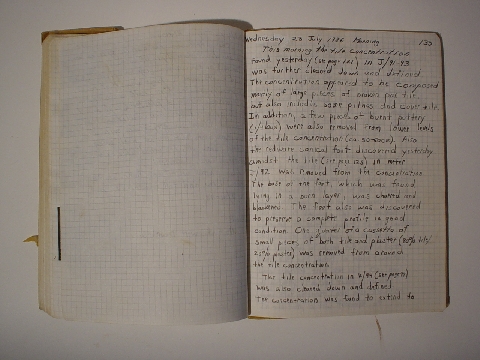 Wednesday 23 July 1986 Morning 133
This morning the tile concentration
found yesterday (see page 131) in J/91-93
was further cleaned down and defined
The concentration appeared to be composed
mainly of large pieces of broken pan tile,
but also included some pithos and cover tile.
In addition, a few pieces of burnt pottery
were also removed from lower levels
of the tile concentration Also
the red ware conical foot discovered yesterday
amidst the tile in meter
was removed from the concentration
The base of the foot, which was found
lying in a layer, was charred and
blackened. The foot also was discovered
to preserve a complete profile in good
condition. One quarter of a cassetta of
small pieces, of both tile and plaster
plaster), was removed from around
the tile concentration
The tile concentration in
was also cleaned down and defined
The concentration was found to extend to